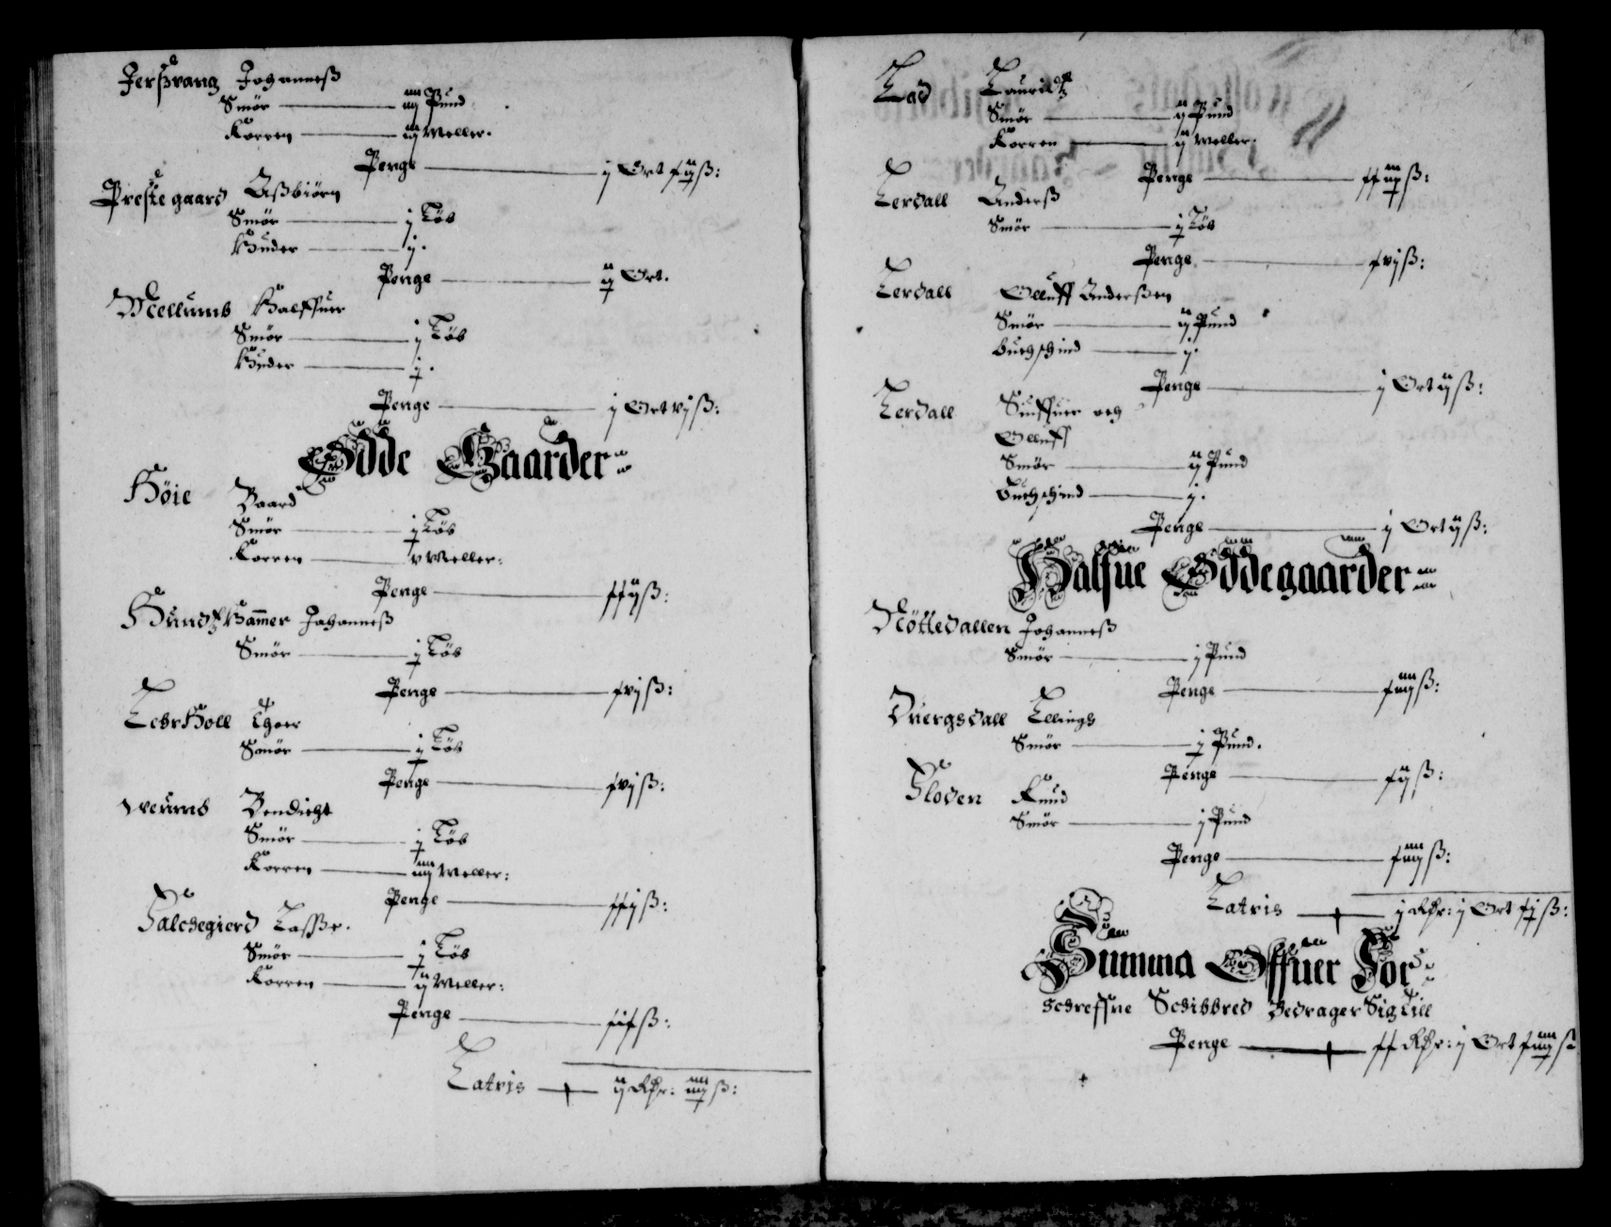 Jerßvang Johanneß
Smør —— iiij Pund
Korren —— iij Meller.
Penge —— j Ort
Prestegaard Aßbiörn
Smør —— j Löb
Huder —— j.
Penge —— Ort.
Mellumb Halffuer
Smør —— j Löb
Huder —— j.
Penge —— j Ort vjß:
Ödde Gaarder
Höie Baard
Smør —— j Löb
Korren —— v Meller:
Penge —— xxijß:
Hundhammer Johanneß
Smør —— j Löb
Penge —— xvjß:
Thoer
Smør —— j Löb
Penge —— xvjß:
Weumb Bendicht
Smør —— j Löb
Korren —— iiij Meller:
Penge —— xxjß:
Lasße.
Smør —— j Löb
Korren —— ij Meller:
Penge —— ß:
Latris —— ij Rdr: ß:
Lad Lauridtz
Smør —— ij Pund
Korren —— ij Meller.
Penge —— ß:
Lerdall Anderß
Smør —— Löb
Penge —— xvjß:
Lerdall Olluff Anderßen
Smør —— ij Pund
Buchschind —— j.
Penge —— j Ort ijß:
Lerdall Siuffuer och
Olluff
Smør —— ij Pund
Buchschind —— j.
Penge —— j Ort ijß:
Halfue Öddegaarder
Nöttedallen Johanneß
Smør —— j Pund
Penge —— xiiijß:
Duergsdall Ellingh
Smør —— Pund.
Penge —— xijß:
Floden Knud
Smør —— j Pund
Penge —— xiiijß:
Latris —— j Rdr: j Ort ß:
Summa Offuer For
schreffne Schibbred Bedrager Sig Till
Penge —— xx Rdr: j Ort ß